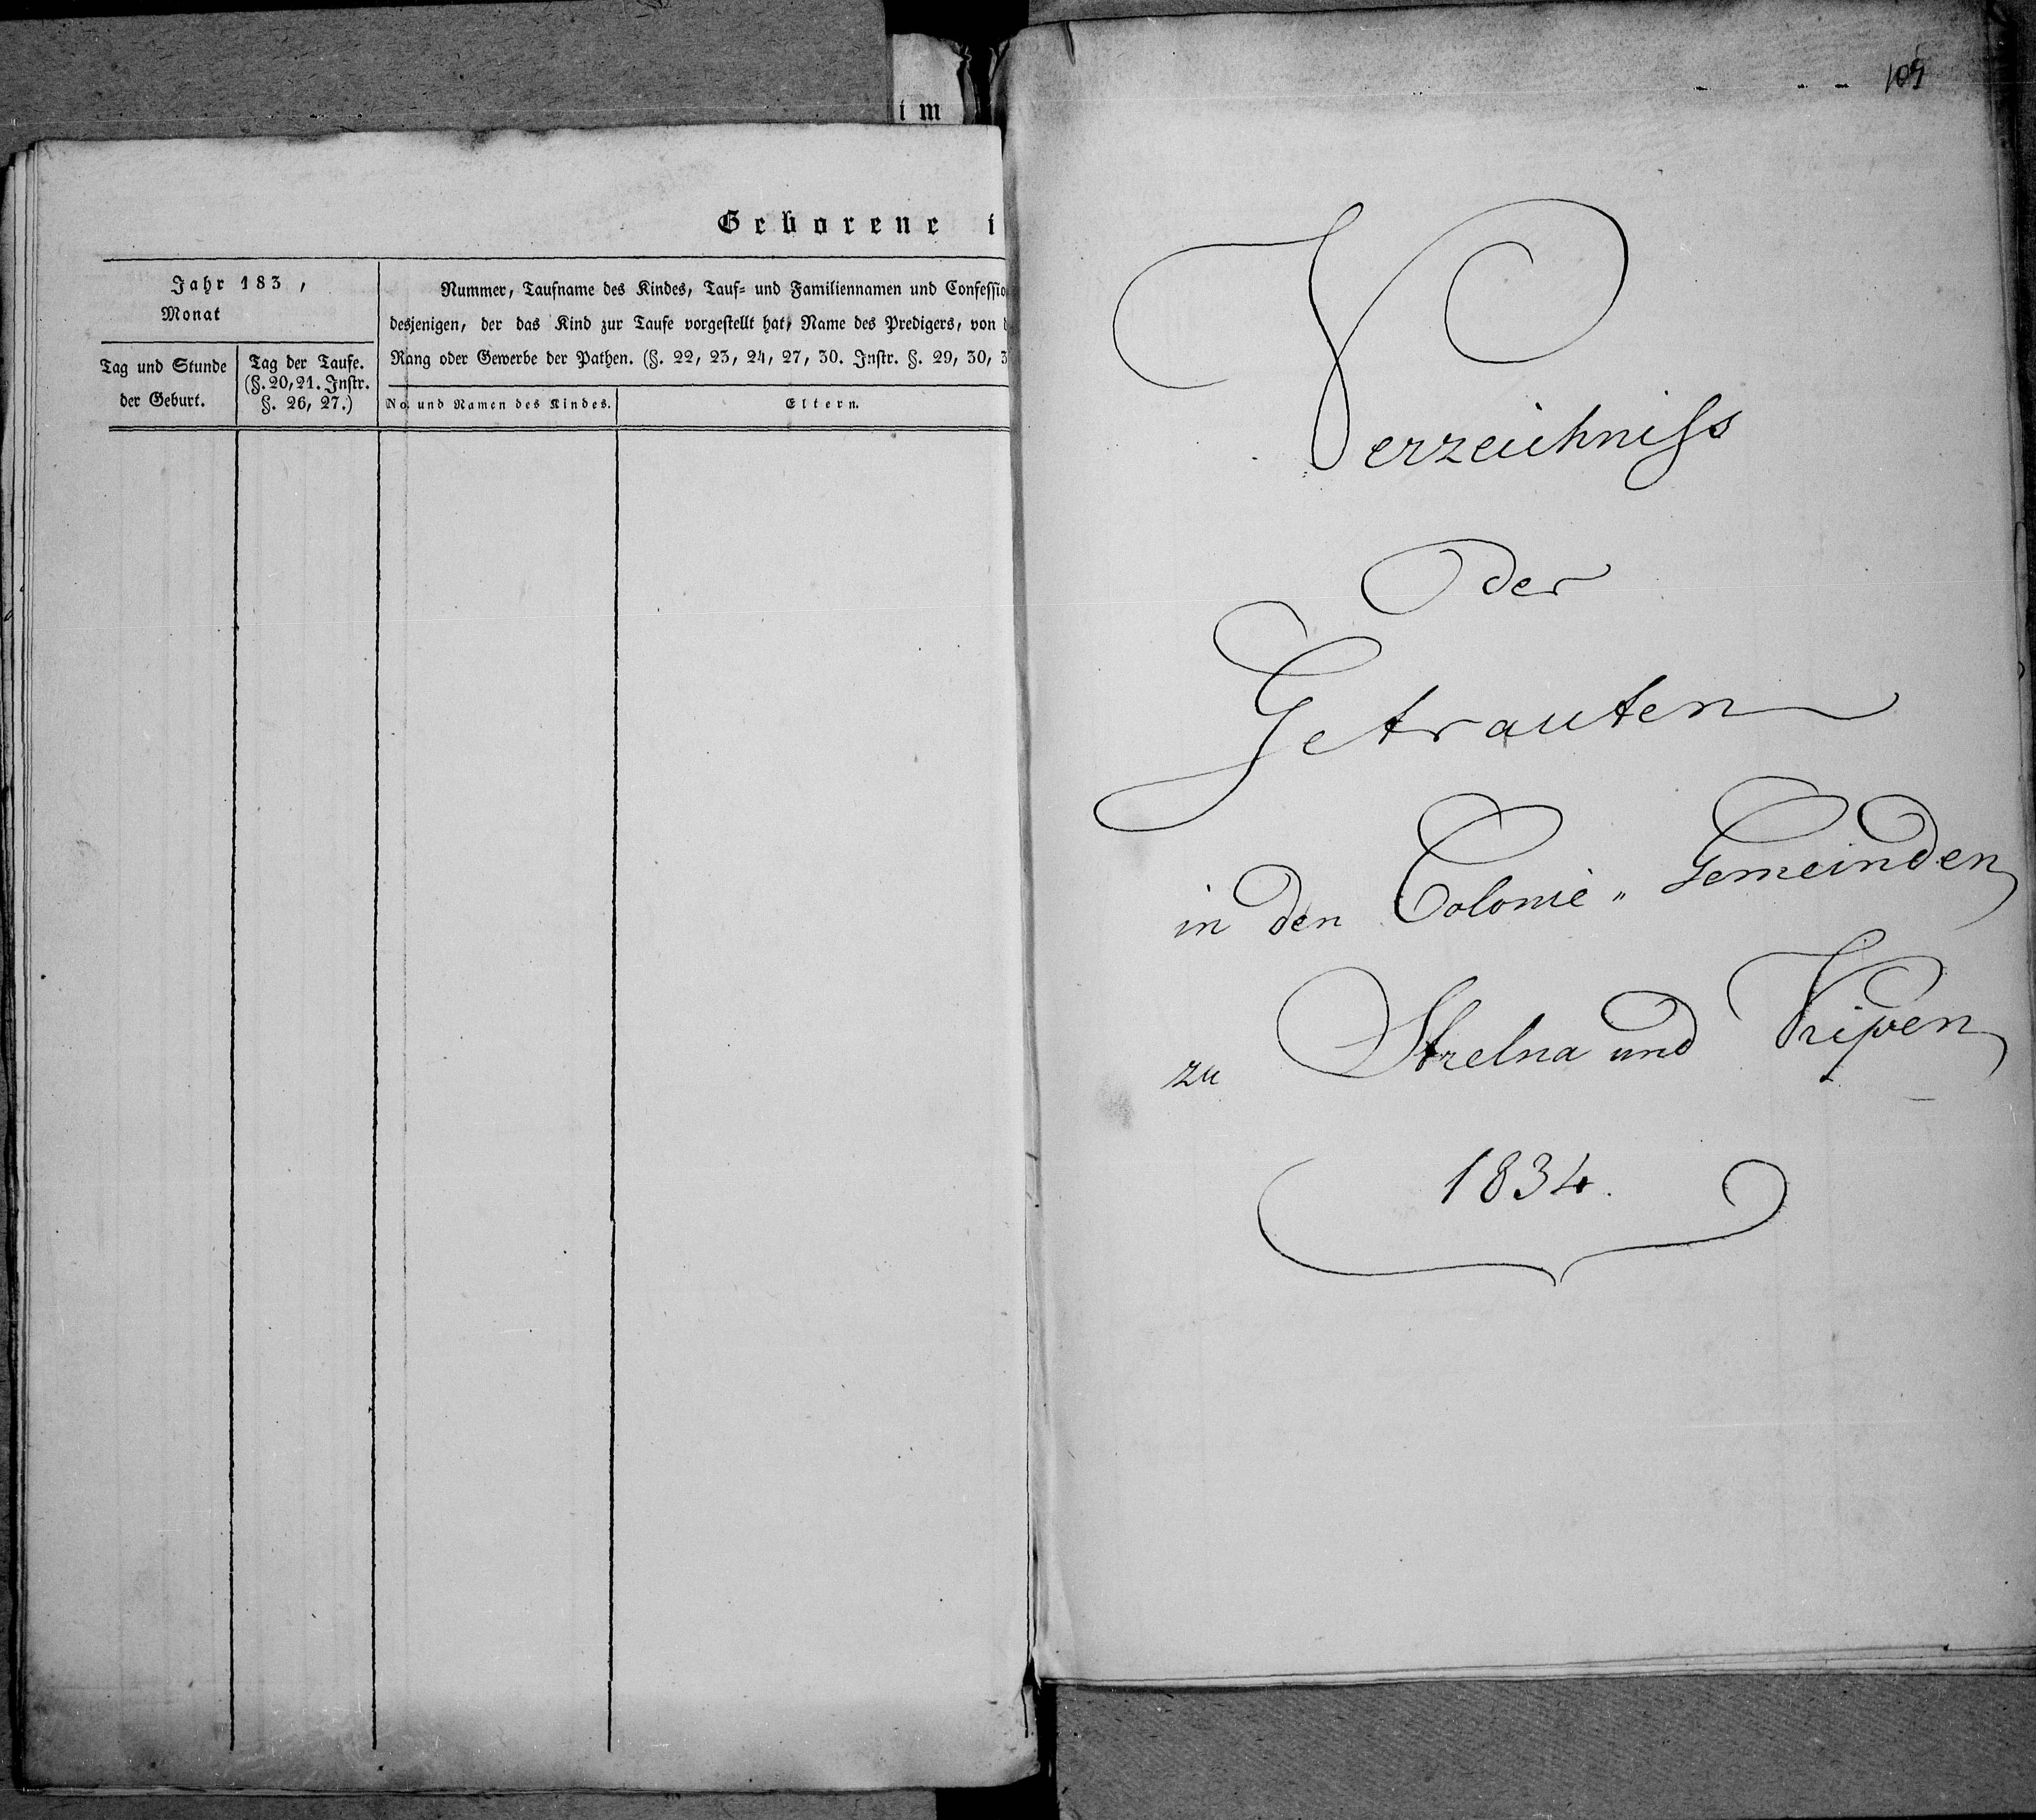 im
Geborene i
Jahr 183 ,
Monat
Tag und Stunde
der Geburt.
Tag der Taufe.
(§. 20, 21. Instr.
§. 26, 27.)
Nummer, Taufname des Kindes, Tauf- und Familiennamen und Confessio
desjenigen, der das Kind zur Taufe vorgestellt hat, Name des Predigers, von
Rang oder Gewerbe der Pathen. (§. 22, 23, 24, 27, 30. Instr. §. 29, 30, 3
No. und Namen des Kindes.
Eltern.
Verzeichniss
Der
Getrauten
in den Colonie„ Gemeinden
zu Strelna und Kipen
1834.